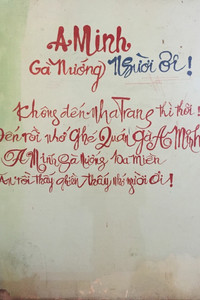 A Minh
Gà Nướng Người ơi!
Không đến Nha Trang thì thôi!
Đến rồi nhớ ghé Quán Gà A Minh
A Minh gà nướng ba miền
Ăn rồi thấy ghiền thấy nhớ người ơi!